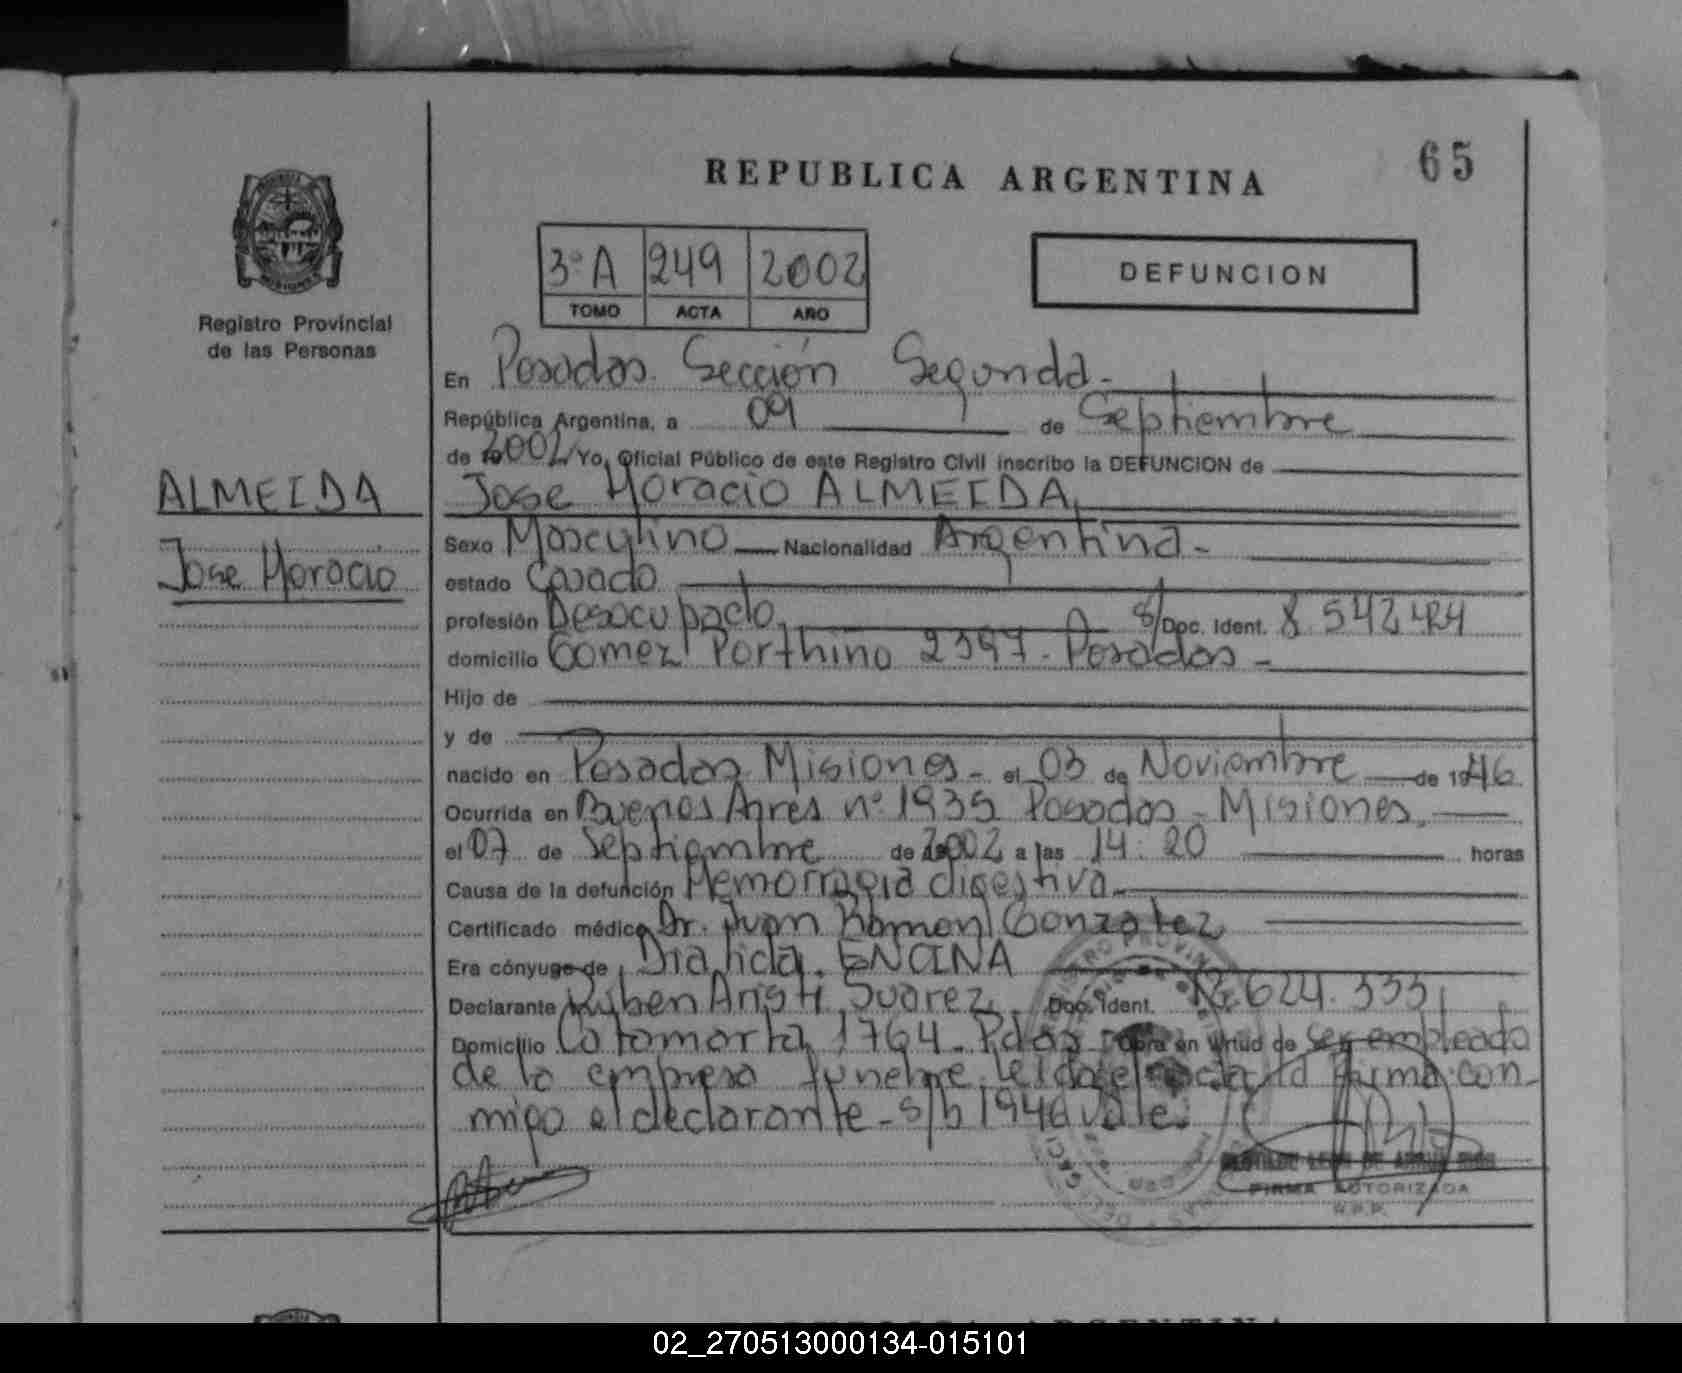 65
REPUBLICA ARGENTINA
3º A 249 2002
TOMO ACTA AÑO
DEFUNCION
Registro Provincial
de las Personas
En Posadas. Sección Segunda.-
República Argentina, a 09 de Septiembre
de 2002 Yo, Oficial Público de este Registro Civil inscribo la DEFUNCION de
ALMEIDA
Jose Horacio
Jose Horacio ALMEIDA
Sexo Masculino Nacionalidad Argentina.-
estado Casado
profesión Desocupado s/Doc. Ident. 8.542.424
domicilio Gomez Porthino 2397. Posadas -
Hijo de
y de
nacido en Posadas Misiones - el 03 de Noviembre de 1946
Ocurrida en Buenos Aires nº 1935 Posadas - Misiones.
el 07 de Septiembre de 2002 a las 14:20 horas
Causa de la defunción Hemorragia digestiva.
Certificado médico Dr. Juan Ramon Gonzalez
Era cónyuge de ENCINA
Declarante Ruben Aristi Suarez Doc. Ident. 624.333
Domicilio Catamarca 1764. Pdas Obra en virtud de ser empleado
de la empresa funebre. Leida el acta la firma con-
migo el declarante - s/b 1946 vale.
FIRMA AUTORIZADA
R.P.P.
REPUBLICA ARGENTINA
02_270513000134-015101